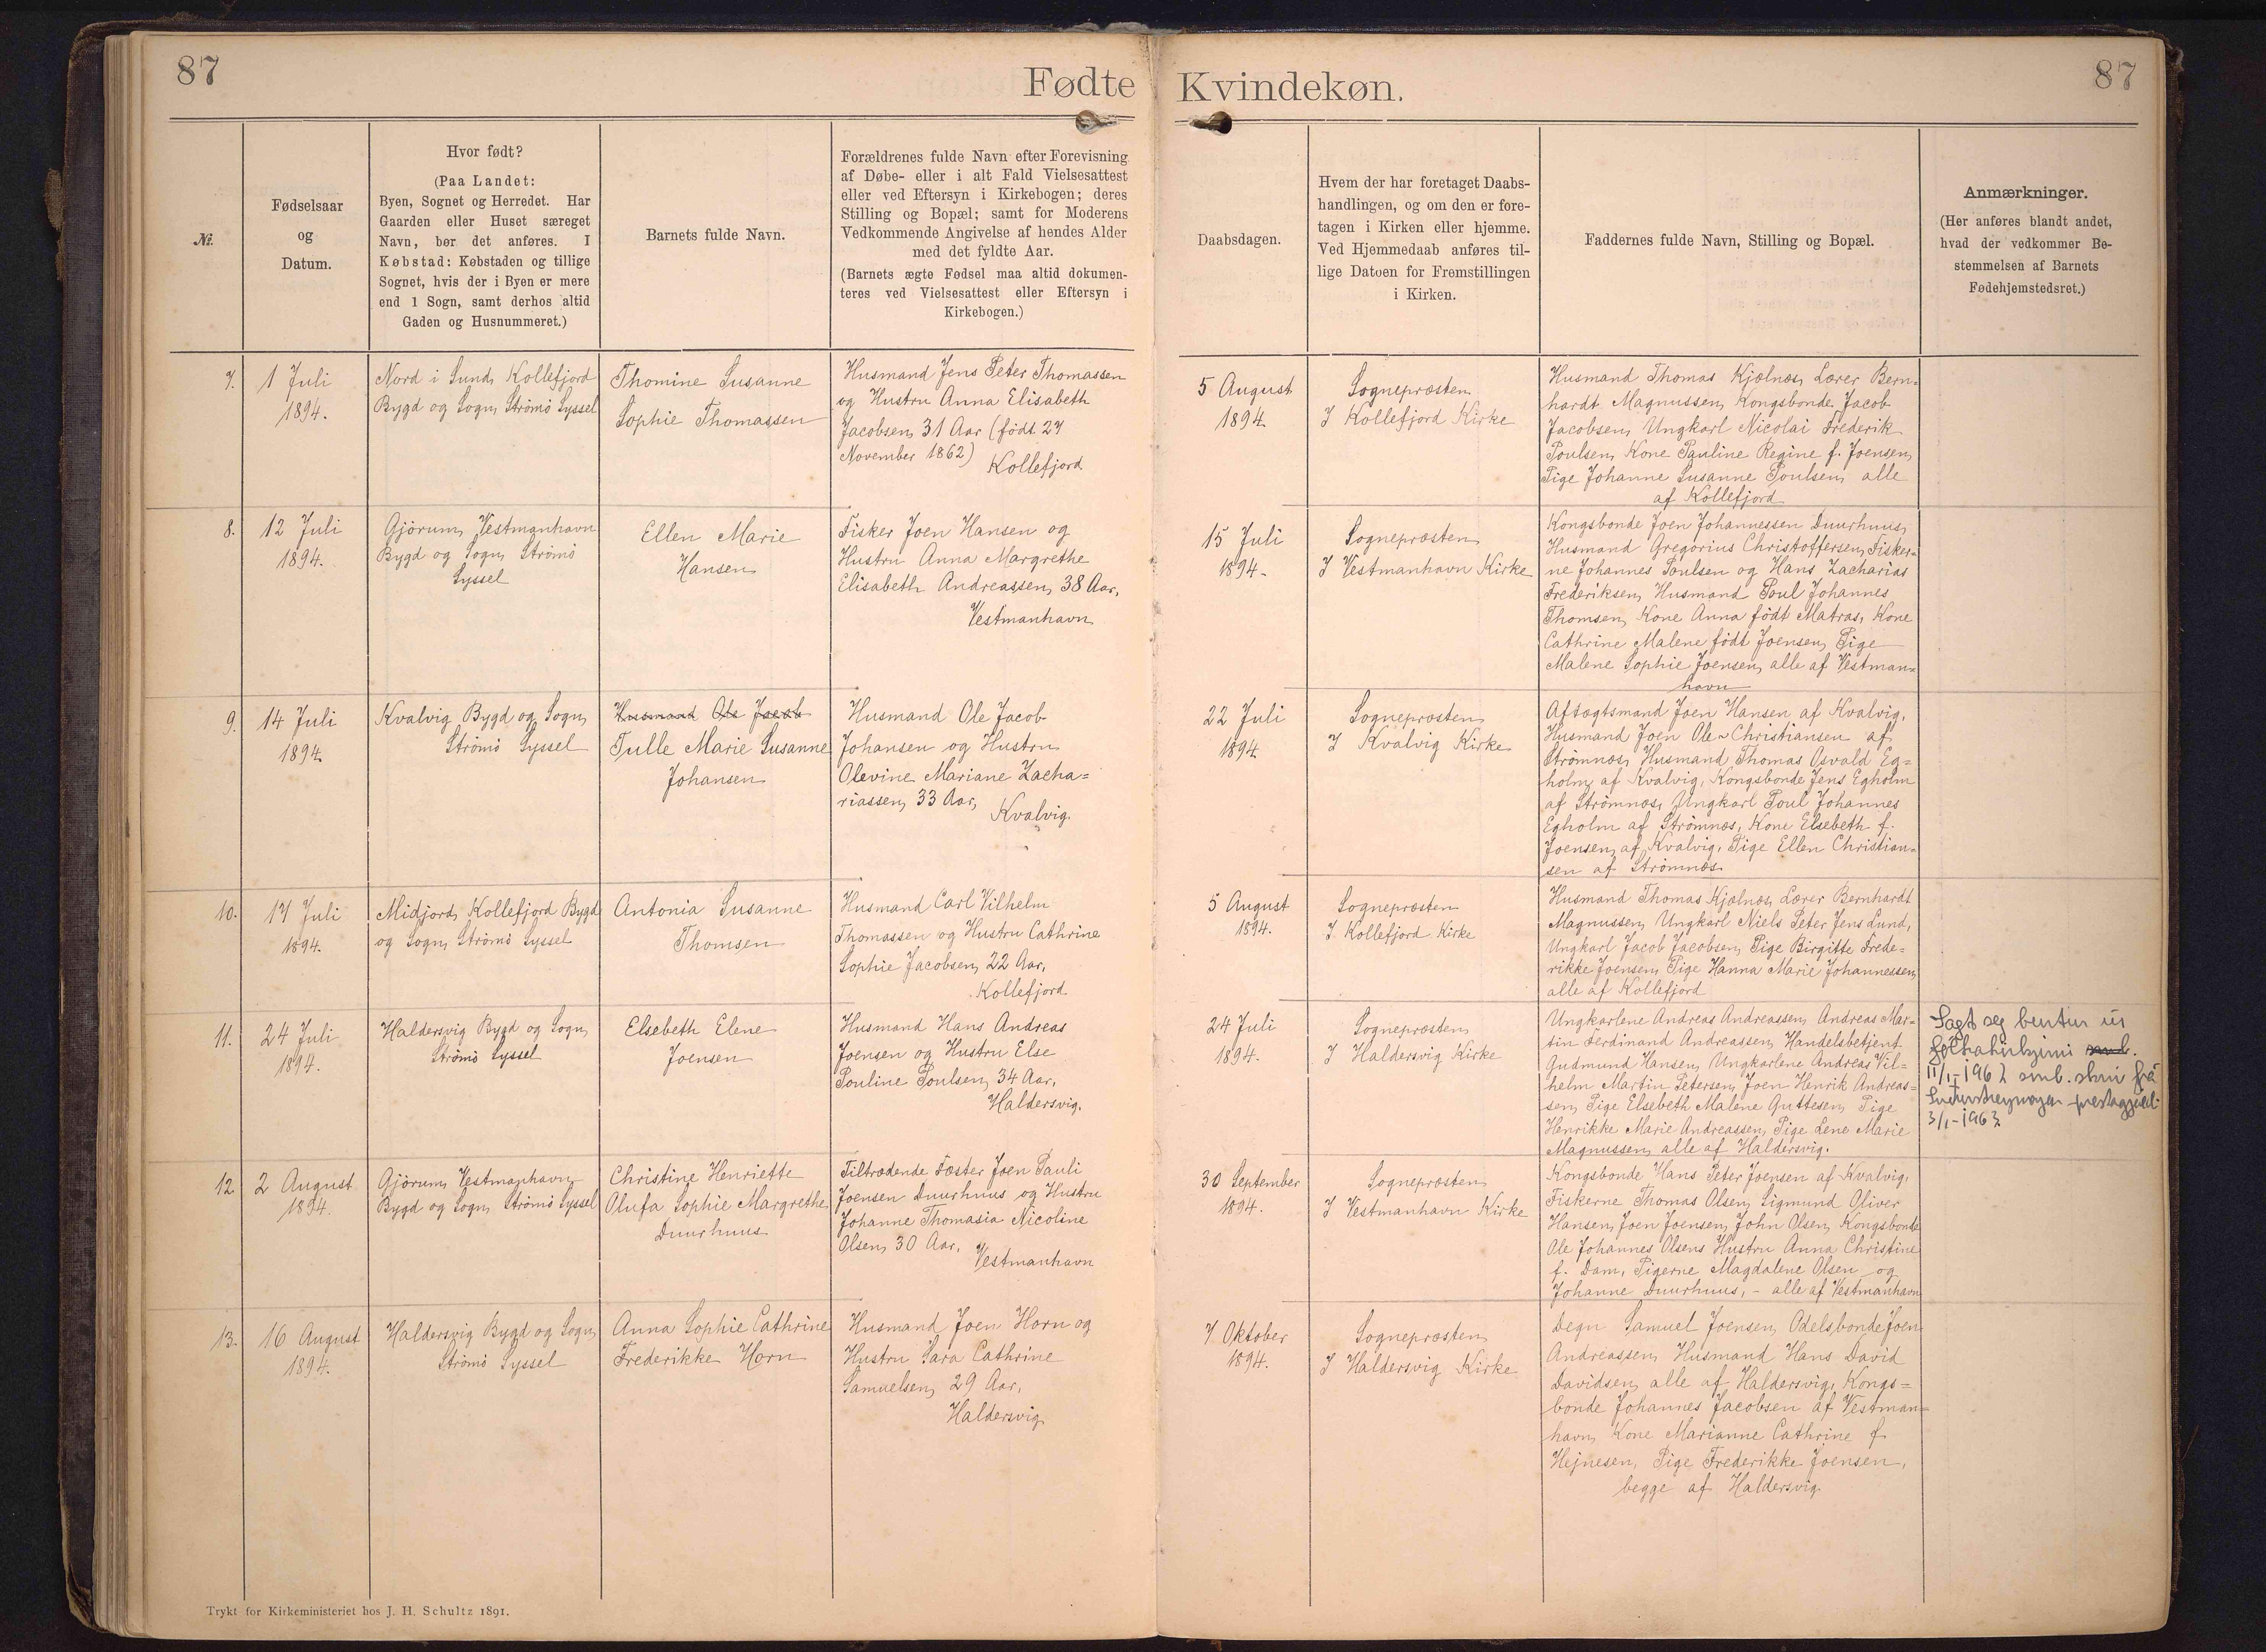 87
Fødte
Kvindekøn.
87
№.
Fødselsaar
og
Datum.
Hvor født?
(Paa Landet:
Byen, Sognet og Herredet. Har
Gaarden eller Huset særeget
Navn, bør det anføres. I
Købstad: Købstaden og tillige
Sognet, hvis der i Byen er mere
end 1 Sogn, samt derhos altid
Gaden og Husnummeret.)
Barnets fulde Navn.
Forældrenes fulde Navn efter Forevisning
af Døbe- eller i alt Fald Vielsesattest
eller ved Eftersyn i Kirkebogen; deres
Stilling og Bopæl; samt for Moderens
Vedkommende Angivelse af hendes Alder
med det fyldte Aar.
(Barnets ægte Fødsel maa altid dokumen-
teres ved Vielsesattest eller Eftersyn i
Kirkebogen.)
Daabsdagen.
Hvem der har foretaget Daabs-
handlingen, og om den er fore-
tagen i Kirken eller hjemme.
Ved Hjemmedaab anføres til-
lige Datoen for Fremstillingen
i Kirken.
Faddernes fulde Navn, Stilling og Bopæl.
Anmærkninger.
(Her anføres blandt andet,
hvad der vedkommer Be-
stemmelsen af Barnets
Fødehjemstedsret.)
7.
1 Juli
1894.
Nord i Sund, Kollefjord
Bygd og Sogn, Strømø Syssel
Thomine Susanne
Sophie Thomassen
Husmand Jens Peter Thomassen
og Hustru Anna Elisabeth
Jacobsen, 31 Aar (født 27
November 1862)
Kollefjord
5 August
1894.
Sognepræsten
I Kollefjord Kirke
Husmand Thomas Kjælnæs, Lærer Bern=
hardt Magnussen, Kongsbonde Jacob
Jacobsen, Ungkarl Nicolai Frederik
Poulsen, Kone Pauline Regine f. Joensen,
Pige Johanne Susanne Poulsen, alle
af Kollefjord
8.
12 Juli
1894.
Gjørum, Vestmanhavn
Bygd og Sogn, Strømø
Syssel
Ellen Marie
Hansen
Fisker Joen Hansen og
Hustru Anna Margrethe
Elisabeth Andreassen, 38 Aar,
Vestmanhavn
15 Juli
1894.
Sognepræsten
I Vestmanhavn Kirke
Kongsbonde Joen Johannessen Duurhuus,
Husmand Gregorius Christoffersen, Fisker=
ne Johannes Poulsen og Hans Zacharias
Frederiksen, Husmand Poul Johannes
Thomsen, Kone Anna født Matras, Kone
Cathrine Malene født Joensen, Pige
Malene Sophie Joensen, alle af Vestman=
havn
9.
14 Juli
1894.
Kvalvig Bygd og Sogn,
Strømø Syssel
Husmand Ole Jacob
Tulle Marie Susanne
Johansen
Husmand Ole Jacob
Johansen og Hustru
Olevine Mariane Zacha=
riassen, 33 Aar,
Kvalvig.
22 Juli
1894
Sognepræsten
I Kvalvig Kirke
Aftægtsmand Joen Hansen af Kvalvig,
Husmand Joen Ole Christiansen af
Strømnæs, Husmand Thomas Osvald Eg=
holm af Kvalvig, Kongsbonde Jens Egholm
af Strømnæs, Ungkarl Poul Johannes
Egholm af Strømnæs, Kone Elsebeth f.
Joensen, af Kvalvig, Pige Ellen Christian=
sen af Strømnæs.
10.
17 Juli
1894.
Midjord, Kollefjord Bygd
og Sogn, Strømø Syssel
Antonia Susanne
Thomsen
Husmand Carl Vilhelm
Thomassen og Hustru Cathrine
Sophie Jacobsen, 22 Aar,
Kollefjord
5 August
1894.
Sognepræsten
I Kollefjord Kirke
Husmand Thomas Kjælnæs, Lærer Bernhardt
Magnussen, Ungkarl Niels Peter Jens Lund,
Ungkarl Jacob Jacobsen, Pige Birgitte Frede=
rikke Joensen, Pige Hanna Marie Johannessen,
alle af Kollefjord
11.
24 Juli
1894.
Haldersvig Bygd og Sogn,
Strømø Syssel
Elsebeth Elene
Joensen
Husmand Hans Andreas
Joensen og Hustru Else
Pouline Poulsen, 34 Aar,
Haldersvig.
24 Juli
1894.
Sognepræsten
I Haldersvig Kirke
Ungkarlene Andreas Andreassen, Andreas Mar=
tin Ferdinand Andreassen, Handelsbetjent
Gudmund Hansen, Ungkarlene Andreas Vil=
helm Martin Petersen, Joen Henrik Andreas=
sen, Pige Elsebeth Malene Guttesen, Pige
Henrikke Marie Andreassen, Pige Lene Marie
Magnussen, alle af Haldersvig.
Sagt seg burtur úr
fólkakirkjuni
11/1-1962 smb. skriv frá
prestagjald
3/1-1963
12
2 August
1894.
Gjørum, Vestmanhavn
Bygd og Sogn, Strømø Syssel
Christine Henriette
Olufa Sophie Margrethe
Duurhuus
Tiltrædende Fæster Joen Pauli
Joensen Duurhuus og Hustru
Johanne Thomasia Nicoline
Olsen, 30 Aar,
Vestmanhavn
30 September
1894.
Sognepræsten
I Vestmanhavn Kirke
Kongsbonde Hans Peter Joensen af Kvalvig,
Fiskerne Thomas Olsen, Sigmund Oliver
Hansen, Joen Joensen, John Olsen, Kongsbonde
Ole Johannes Olsens Hustru Anna Christine
f. Dam, Pigerne Magdalene Olsen og
Johanne Duurhuus, - alle af Vestmanhavn
13.
16 August
1894.
Haldersvig Bygd og Sogn,
Strømø Syssel
Anna Sophie Cathrine
Frederikke Horn
Husmand Joen Horn og
Hustru Sara Cathrine
Samuelsen, 29 Aar,
Haldersvig
7 Oktober
1894.
Sognepræsten
I Haldersvig Kirke
Degn Samuel Joensen, Odelsbonde Joen
Andreassen, Husmand Hans David
Davidsen, alle af Haldersvig, Kongs=
bonde Johannes Jacobsen af Vestman=
havn, Kone Marianne Cathrine f.
Hejnesen, Pige Frederikke Joensen,
begge af Haldersvig.
Trykt for Kirkeministeriet hos J. H. Schultz 1891.